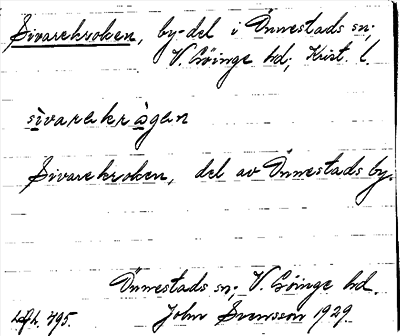 Sivarekroken, by-del i Önnestads sn;
V. Göinge hd; Krist. l.
sìvarekrågen
Sivarekroken, del av Önnestads by.
Önnestads sn; V. Göinge hd.
495. John Svensson 1929.